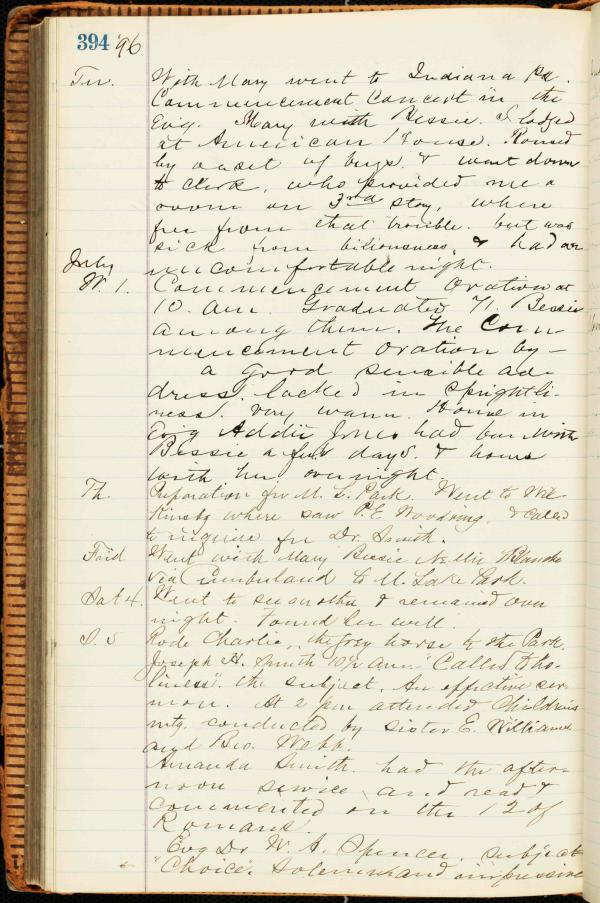 394 '96
Tu. With Mary went to Indiana Pa.
Commencement Concert in the
Evig. Mary with Bessie. I lodged
at American House. Roused
by onset of bugs. & went down
to Clerk, who provided me a
room on 3rd story, where
free from that trouble. but was
sick from biliousness, & had an
uncomfortable night.
July
W. 1. Commencement Oration at
10. am. Graduated 71. Bessie
among them. The Com-
mencement Oration by —
a good sensible ad-
dress. lacked in sprightli-
ness. Very warm. Home in
Evig Addie Jones had been with
Bessie a few days. & home
with her overnight.
Th. Preparation for M. L. Park. Went to Wil
kinsbg where saw P. E. Woodring, & called
to inquire for Dr. Smith.
Frid Went with Mary Bessie Nellie & Blanche
via Cumberland to M. Lake Park.
Sat 4. Went to see mother & remained over
night. Found her well.
S. 5 Rode Charlie, the grey horse to the Park.
Joseph H. Smith 10½ am "Called to Ho-
liness" the subject. An effective ser-
mon. At 2 pm attended Childrens
mtg. conducted by Sister E. Williams
and Bro. Webb.
Amanda Smith had the after-
noon service and read &
commented on the 12 of
Romans.
Evg Dr W. A. Spencer, subject
"Choice". Solemn and impressive